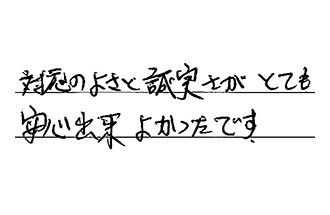 対応のよさと誠実さがとても
安心出来よかったです